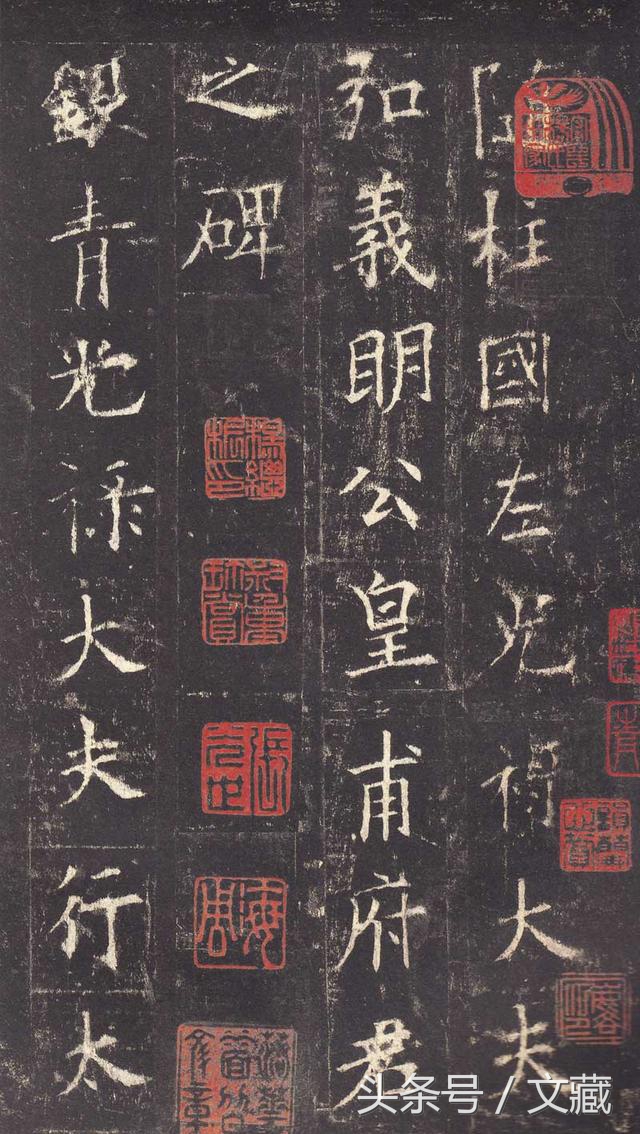 柱國左光祿大夫
弘義明公皇甫府君
之碑
銀青光祿大夫行太
头条号 / 文藏